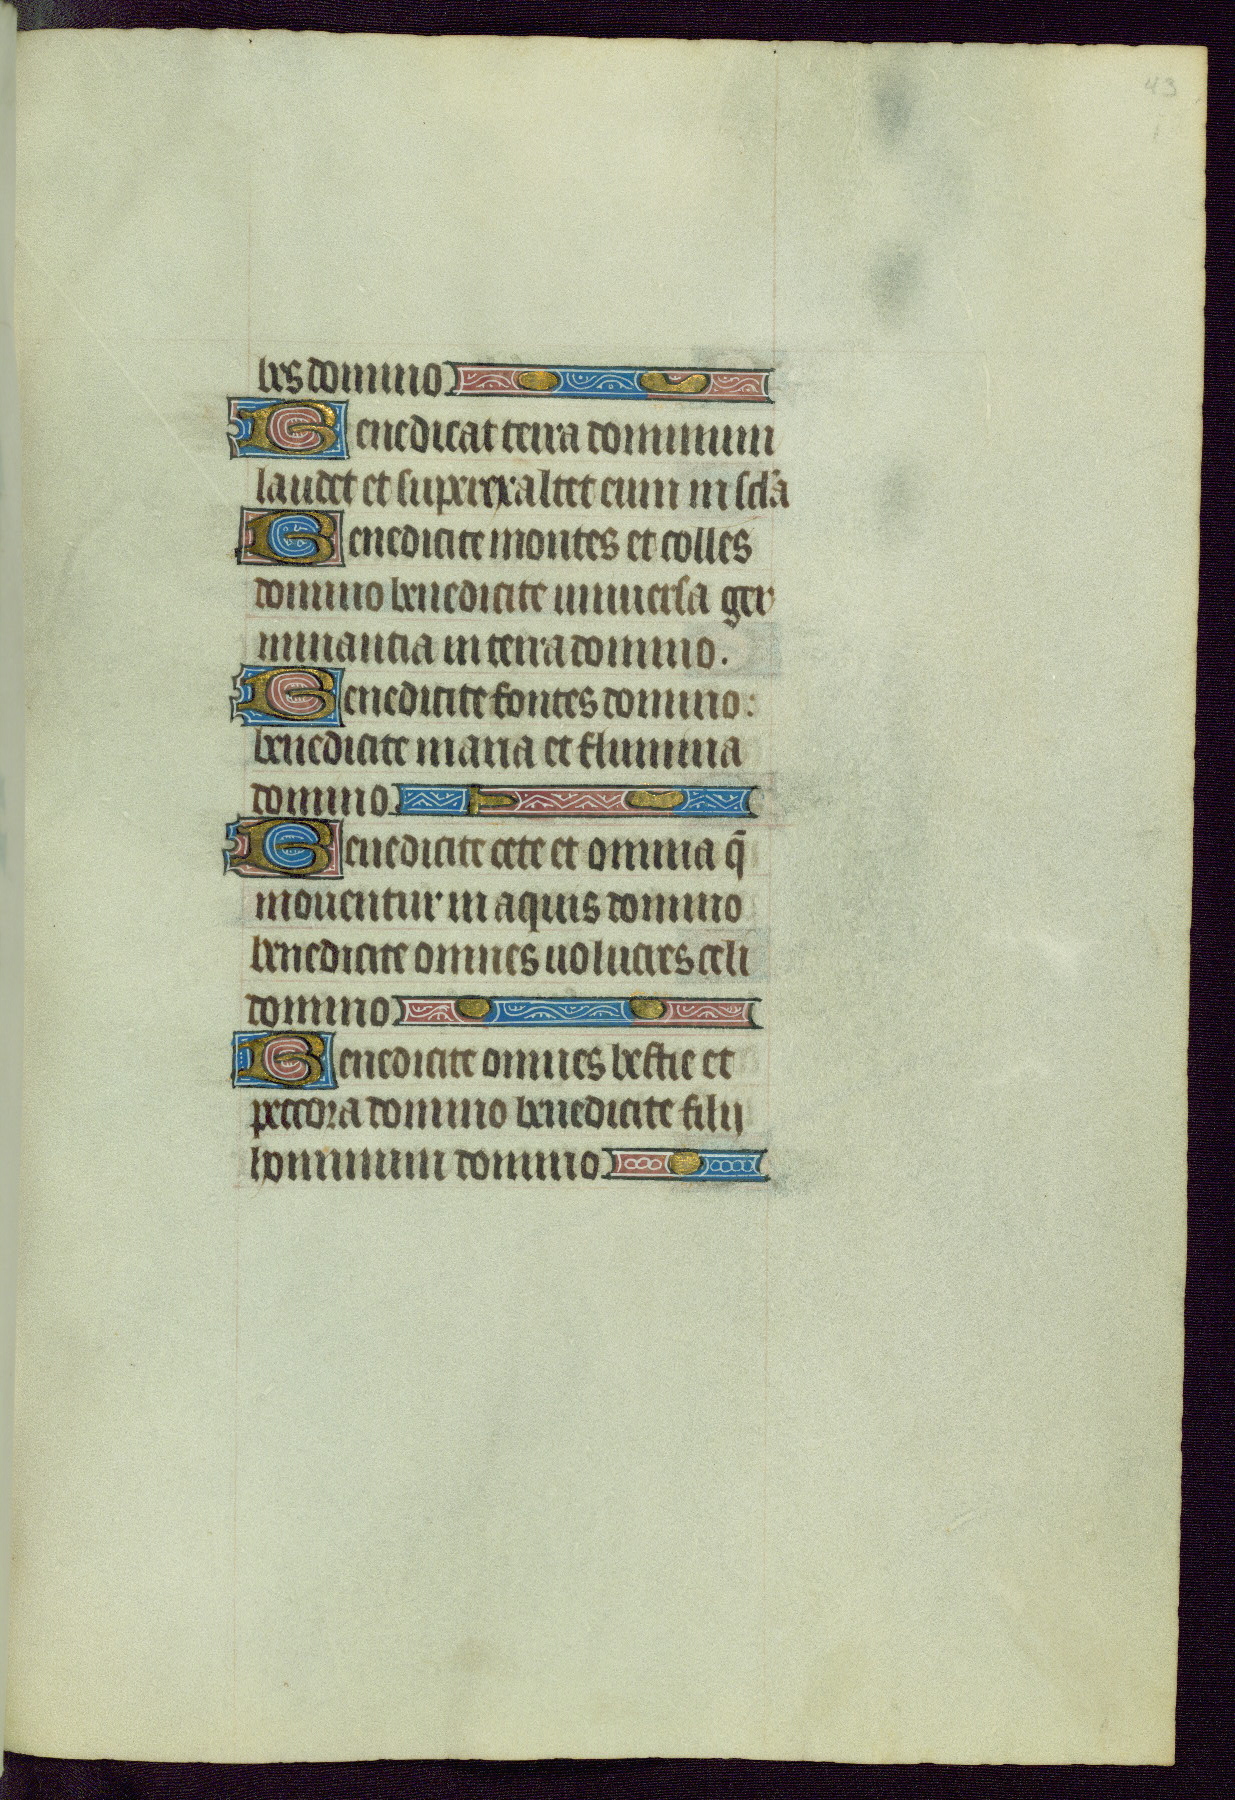 43
bes domino
Benedicat terra dominum
laudet et superexaltet eum in scl'a
Benedicite montes et colles
domino benedicite uniuersa ger
minantia in terra domino.
Benedicite fontes domino:
benedicite maria et flumina
domino
Benedicite cete et omnia q̄
mouentur in aquis domino
benedicite omnes uolucres celi
domino
Benedicite omnes bestie et
peccora domino benedicite filij
hominum domino